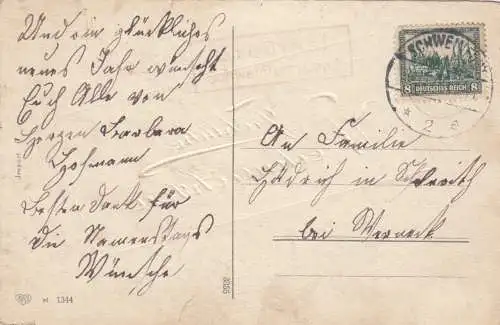 Und ein glückliches
neues Jahr wünscht
Euch Alle von
Herzen Barbara
Hofmann
besten Dank für
die Namenstags
Wünsche
An Familie
in
bei Werneck
SCHWEIN
DEUTSCHES REICH
8 8
2 e
Import
M 1344